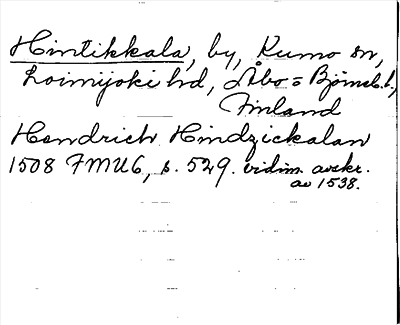 Hintikkala, by, Kumo sn,
Loimijoki hd, Åbo = Björneb. l.,
Finland
Hendrich Hindzickalan
1508 FMU6, s. 529. vidim. avskr.
av 1538.